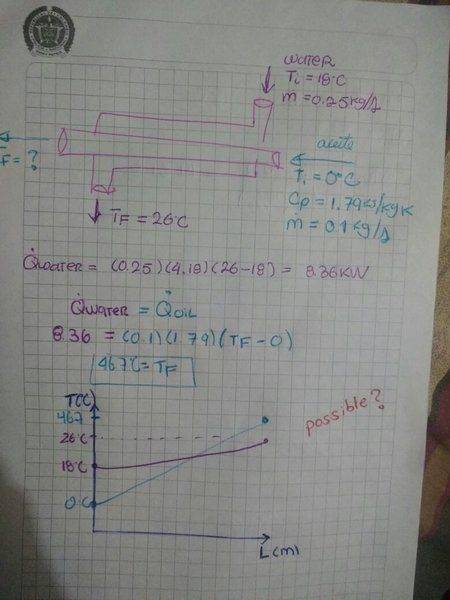 water
Ti = 18°C
ṁ = 0.25kg/s
aceite
TF = ?
Ti = 0°C
Cp = 1.79kJ/kgK
ṁ = 0.1 kg/s
TF = 26°C
Q̇water = (0.25)(4.18)(26-18) = 8.36KW
Q̇water = Q̇OIL
8.36 = (0.1)(1.79)(TF-0)
46.7°C = TF
T(°C)
46.7
26°C
18°C
0°C
L(m)
possible?